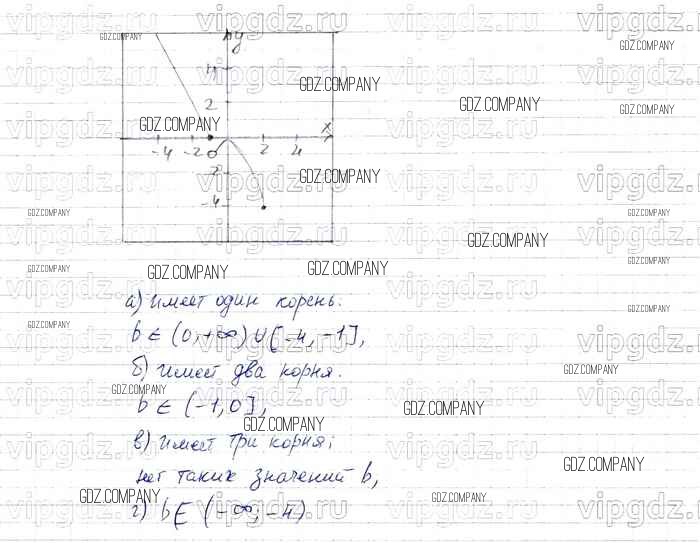 y
4
2
x
-4 -2 0 2 4
-2
-4
а) имеет один корень.
b ∈ (0, +∞) ∪ [-4, -1],
б) имеет два корня.
b ∈ (-1, 0],
в) имеет три корня;
нет таких значений b,
г) b ∈ (-∞; -4)
vipgdz.ru
GDZ.COMPANY